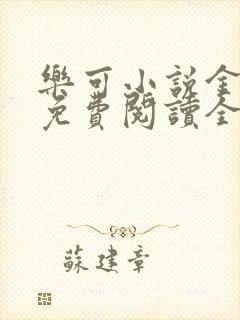 樂可小說全
免費閱讀全
蘇建章